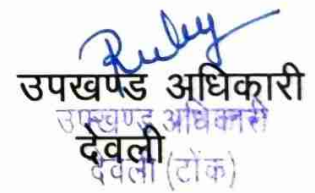 Ruby
उपखण्ड अधिकारी
उपखण्ड अधिकारी
देवली
देवली (टोंक)